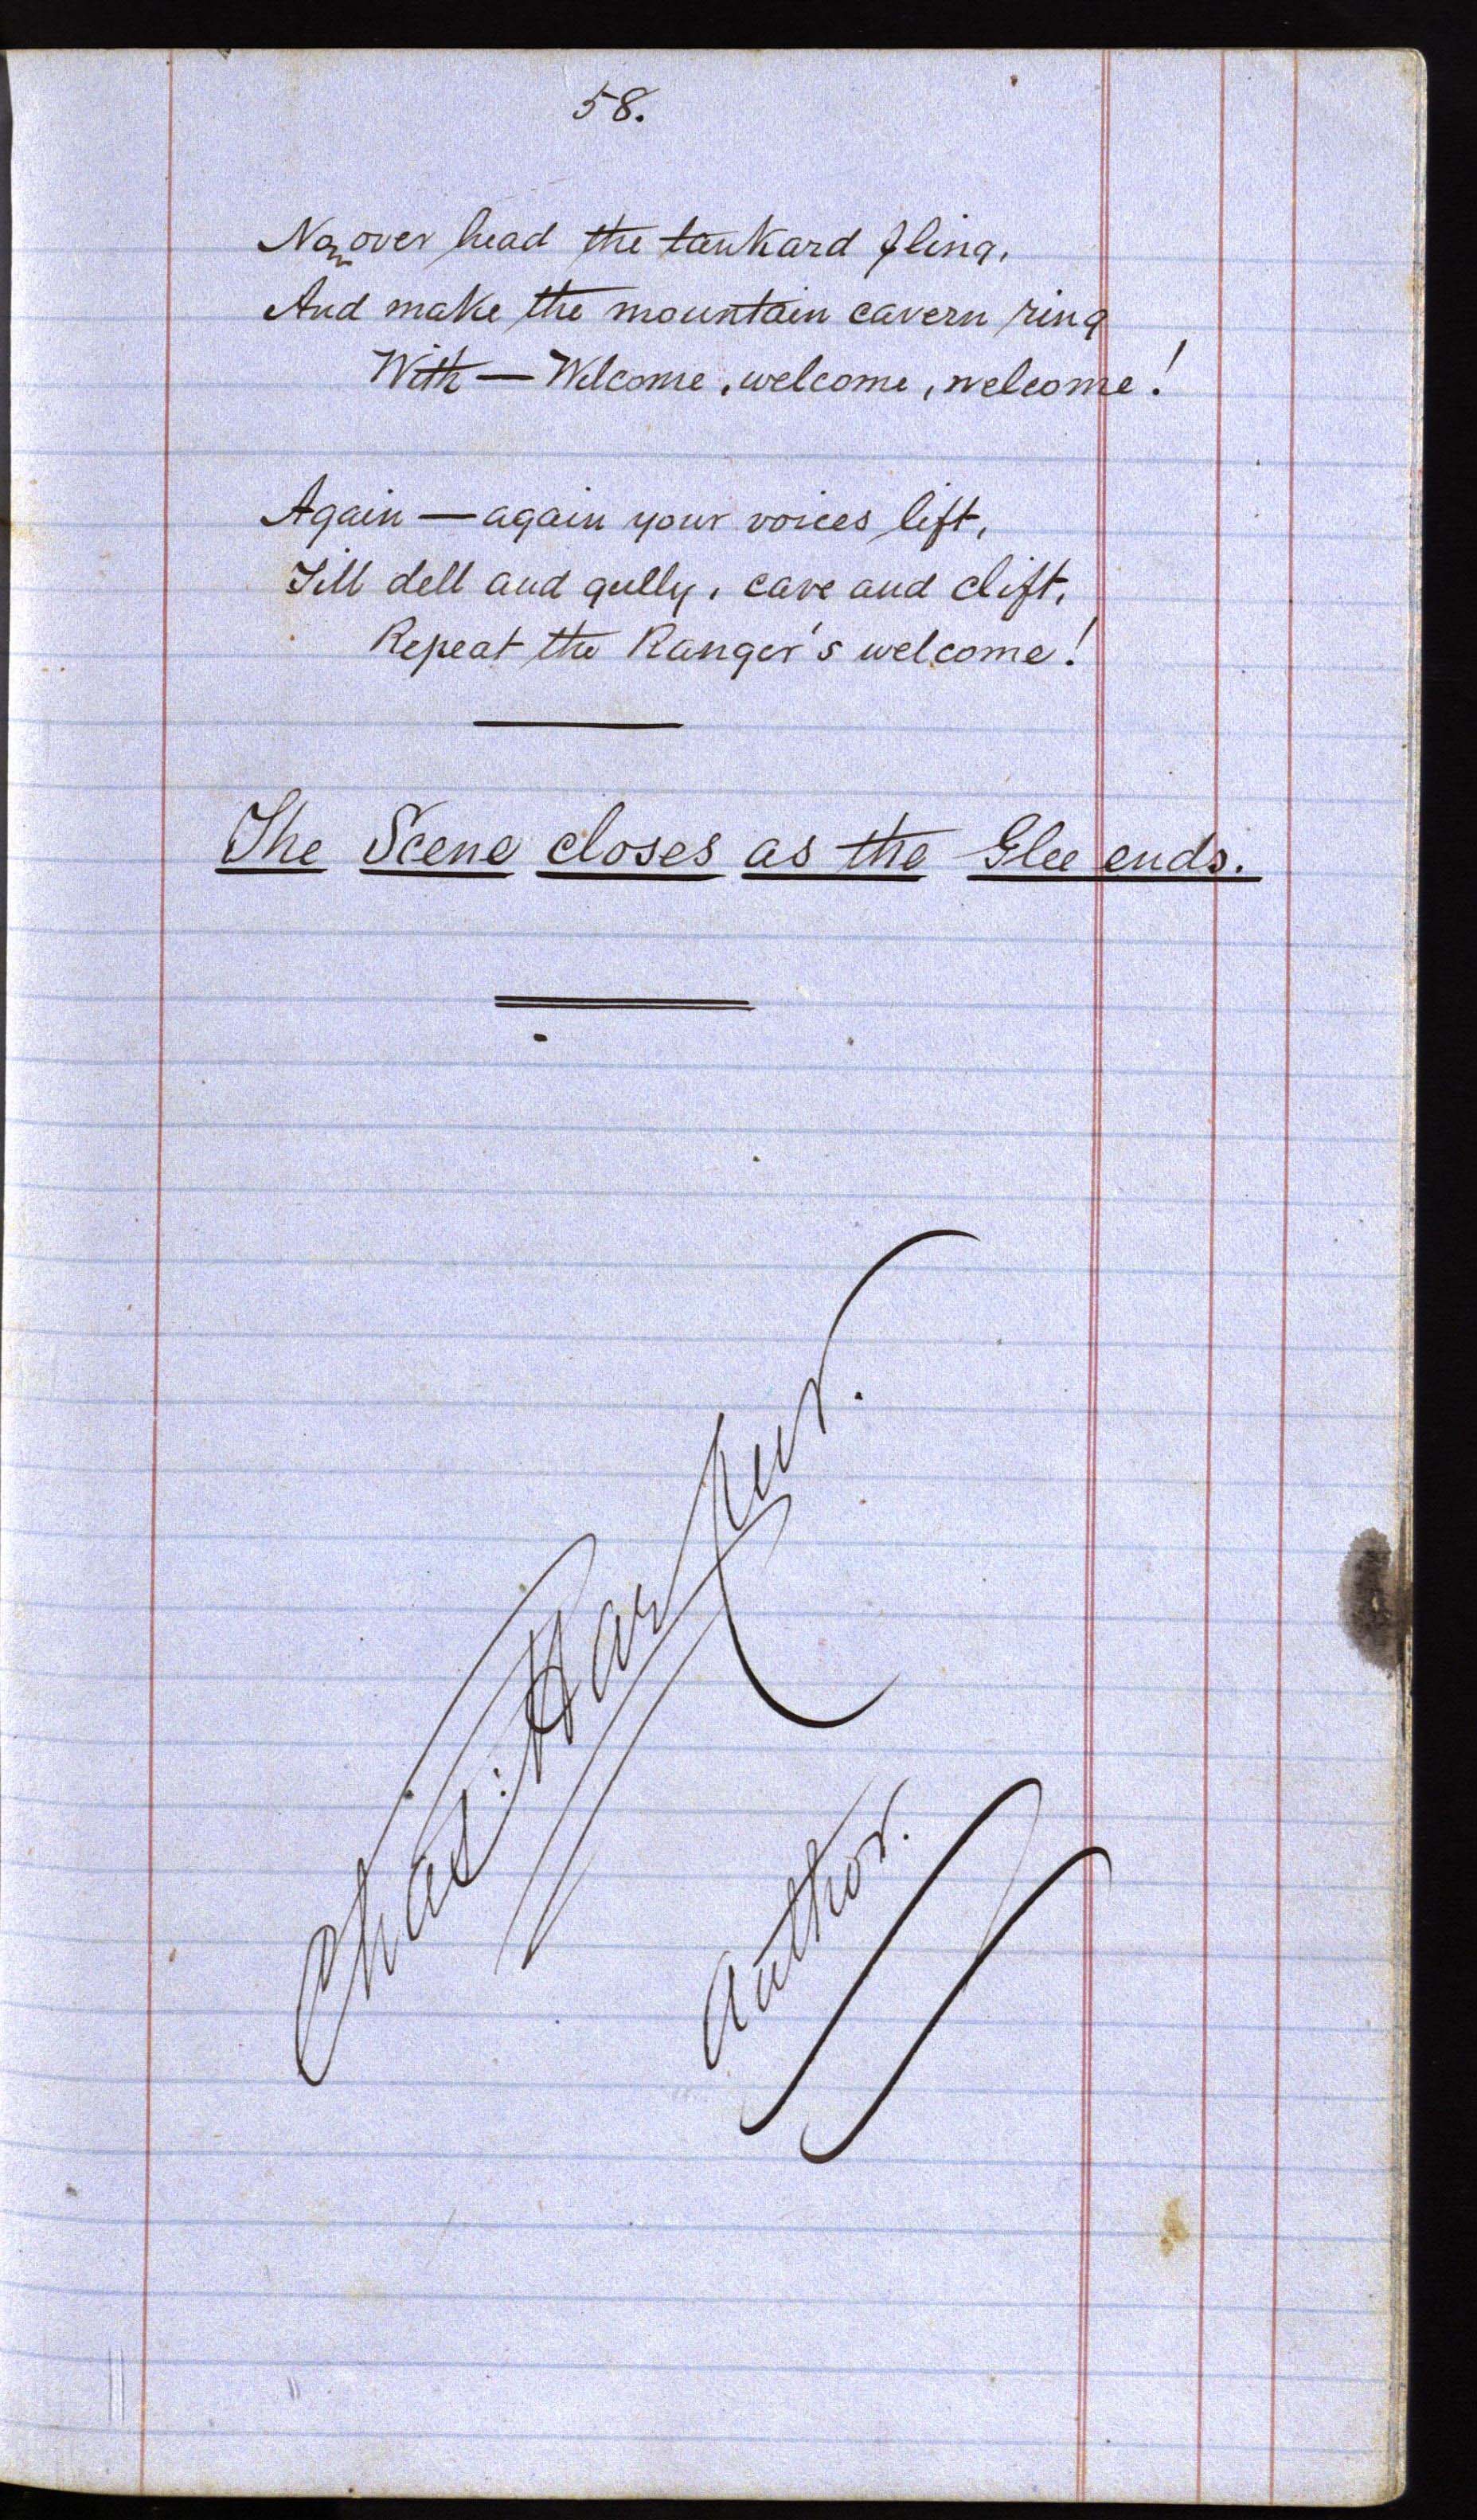 58.
Now over head the tankard fling,
And make the mountain cavern ring
With — Welcome, welcome, welcome!
Again — again your voices lift,
Till dell and gully, cave and clift,
Repeat the Ranger's welcome!
The Scene closes as the Glee ends.
Chas: Harpur.
Author.